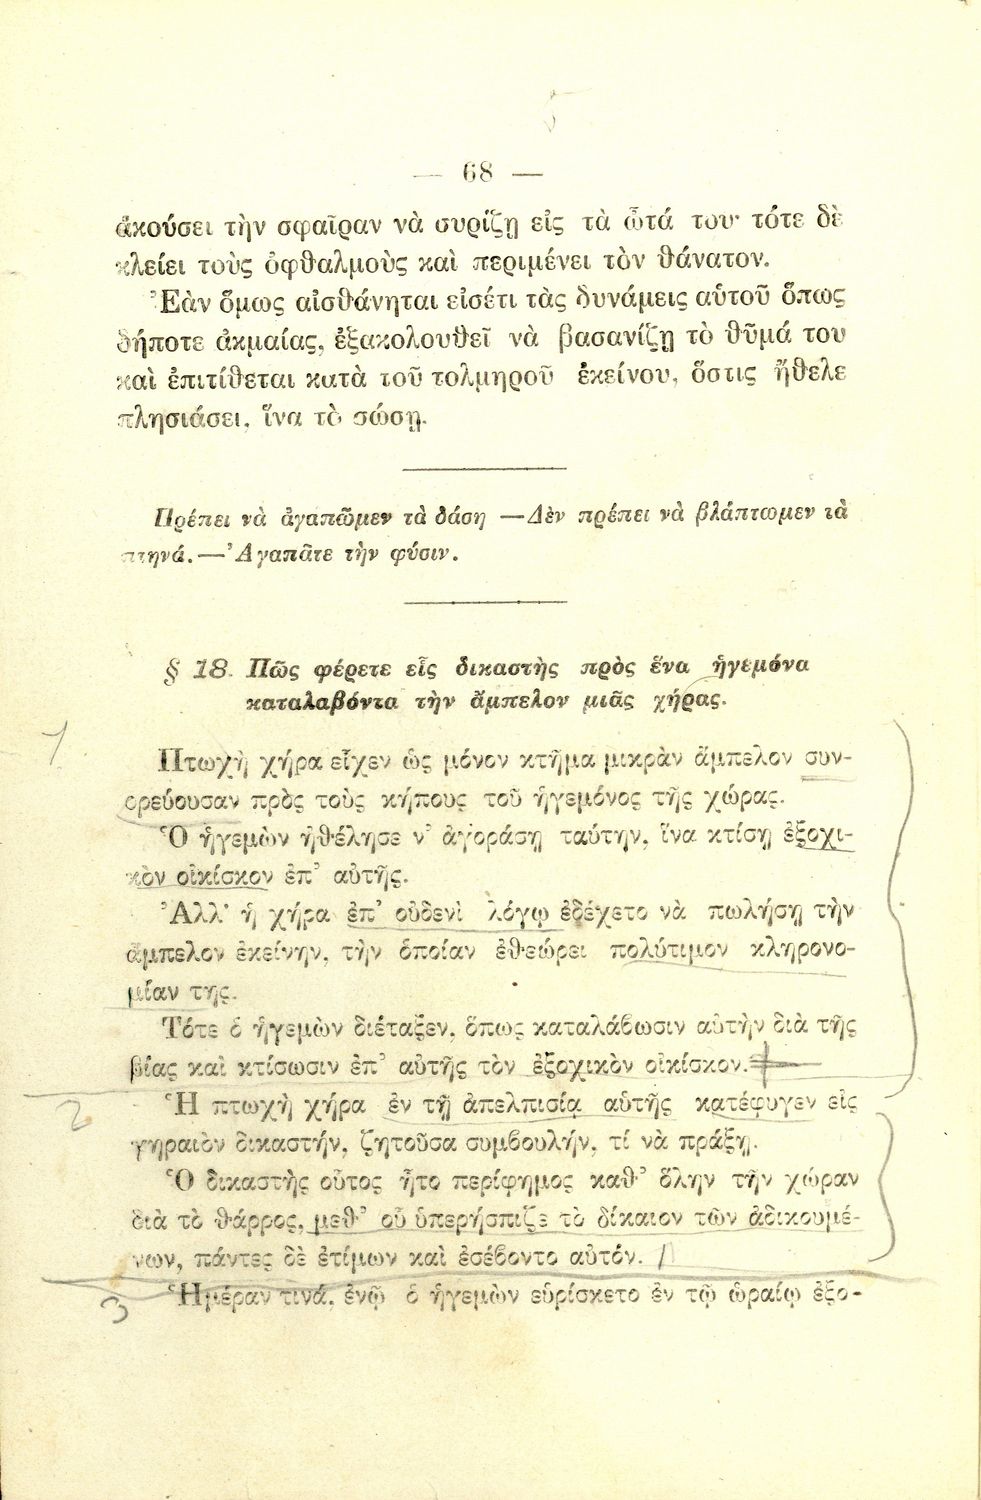 — 68 —
ἀκούσει τὴν σφαῖραν νὰ συρίζῃ εἰς τὰ ὦτά του· τότε δὲ
κλείει τοὺς ὀφθαλμοὺς καὶ περιμένει τὸν θάνατον.
Ἐὰν ὅμως αἰσθάνηται εἰσέτι τὰς δυνάμεις αὐτοῦ ὅπως
δήποτε ἀκμαίας, ἐξακολουθεῖ νὰ βασανίζῃ τὸ θῦμά του
καὶ ἐπιτίθεται κατὰ τοῦ τολμηροῦ ἐκείνου, ὅστις ἤθελε
πλησιάσει, ἵνα τὸ σώσῃ.
Πρέπει νὰ ἀγαπῶμεν τὰ δάση —Δὲν πρέπει νὰ βλάπτωμεν τὰ
πτηνά.—Ἀγαπᾶτε τὴν φύσιν.
§ 18. Πῶς φέρετε εἷς δικαστὴς πρὸς ἕνα ἡγεμόνα
καταλαβόντα τὴν ἄμπελον μιᾶς χήρας.
1
Πτωχὴ χήρα εἶχεν ὡς μόνον κτῆμα μικρὰν ἄμπελον συν-
ορεύουσαν πρὸς τοὺς κήπους τοῦ ἡγεμόνος τῆς χώρας.
Ὁ ἡγεμὼν ἠθέλησε ν' ἀγοράσῃ ταύτην, ἵνα κτίσῃ ἐξοχι-
κὸν οἰκίσκον ἐπ' αὐτῆς.
Ἀλλ' ἡ χήρα ἐπ' οὐδενὶ λόγῳ ἐδέχετο νὰ πωλήσῃ τὴν
ἄμπελον ἐκείνην, τὴν ὁποίαν ἐθεώρει πολύτιμον κληρονο-
μίαν της.
Τότε ὁ ἡγεμὼν διέταξεν, ὅπως καταλάβωσιν αὐτὴν διὰ τῆς
βίας καὶ κτίσωσιν ἐπ' αὐτῆς τὸν ἐξοχικὸν οἰκίσκον.
2
Ἡ πτωχὴ χήρα ἐν τῇ ἀπελπισίᾳ αὐτῆς κατέφυγεν εἰς
γηραιὸν δικαστήν, ζητοῦσα συμβουλήν, τί νὰ πράξῃ.
Ὁ δικαστὴς οὗτος ἦτο περίφημος καθ' ὅλην τὴν χώραν
διὰ τὸ θάρρος, μεθ' οὗ ὑπερήσπιζε τὸ δίκαιον τῶν ἀδικουμέ-
νων, πάντες δὲ ἐτίμων καὶ ἐσέβοντο αὐτόν.
3
Ἡμέραν τινά, ἐνῷ ὁ ἡγεμὼν εὑρίσκετο ἐν τῷ ὡραίῳ ἐξο-